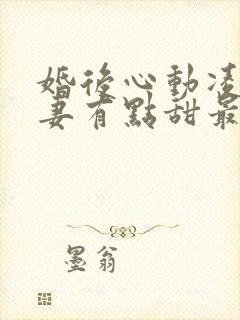 婚後心動凌
妻有點甜最
墨翁